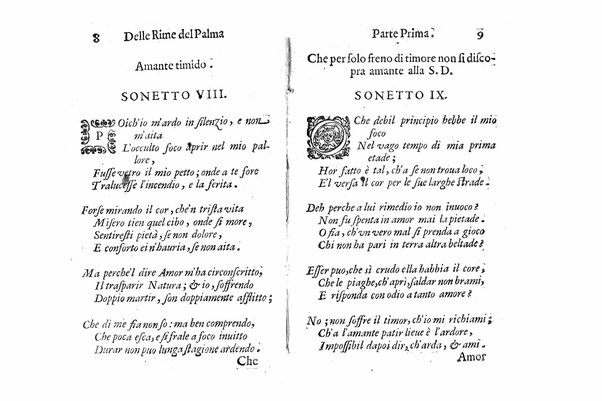 8 Delle Rime del Palma
Amante timido.
SONETTO VIII.
POich'io m'ardo in silenzio, e non
m'aita
L'occulto foco aprir nel mio pal-
lore,
Fusse vetro il mio petto; onde a te fore
Tralucesse l'incendio, e la ferita.
Forse mirando il cor, che'n trista vita
Misero tien quel cibo, onde si more,
Sentiresti pietà, se non dolore,
E conforto ei n'hauria, se non aita.
Ma perche'l dire Amor m'ha circonscritto,
Il trasparir Natura; & io, soffrendo
Doppio martir, son doppiamente afflitto;
Che di me fia non so: ma ben comprendo,
Che poca esca, e sì frale a foco inuitto
Durar non può lunga stagione ardendo.
Che
Parte Prima. 9
Che per solo freno di timore non si disco-
pra amante alla S. D.
SONETTO IX.
CHe debil principio hebbe il mio
foco
Nel vago tempo di mia prima
etade;
Hor fatto è tal, ch'a se non troua loco,
E'l versa il cor per le sue larghe strade.
Deh perche a lui rimedio io non inuoco?
Non fu spenta in amor mai la pietade.
O fia, ch'vn vero mal si prenda a gioco
Chi non ha pari in terra altra beltade?
Esser può, che sì crudo ella habbia il core,
Che le piaghe, ch'aprì, saldar non brami,
E risponda con odio a tanto amore?
No; non soffre il timor, ch'io mi richiami;
Ch'a l'amante patir lieue è l'ardore,
Impossibil dapoi dir, ch'arda, & ami.
Amor